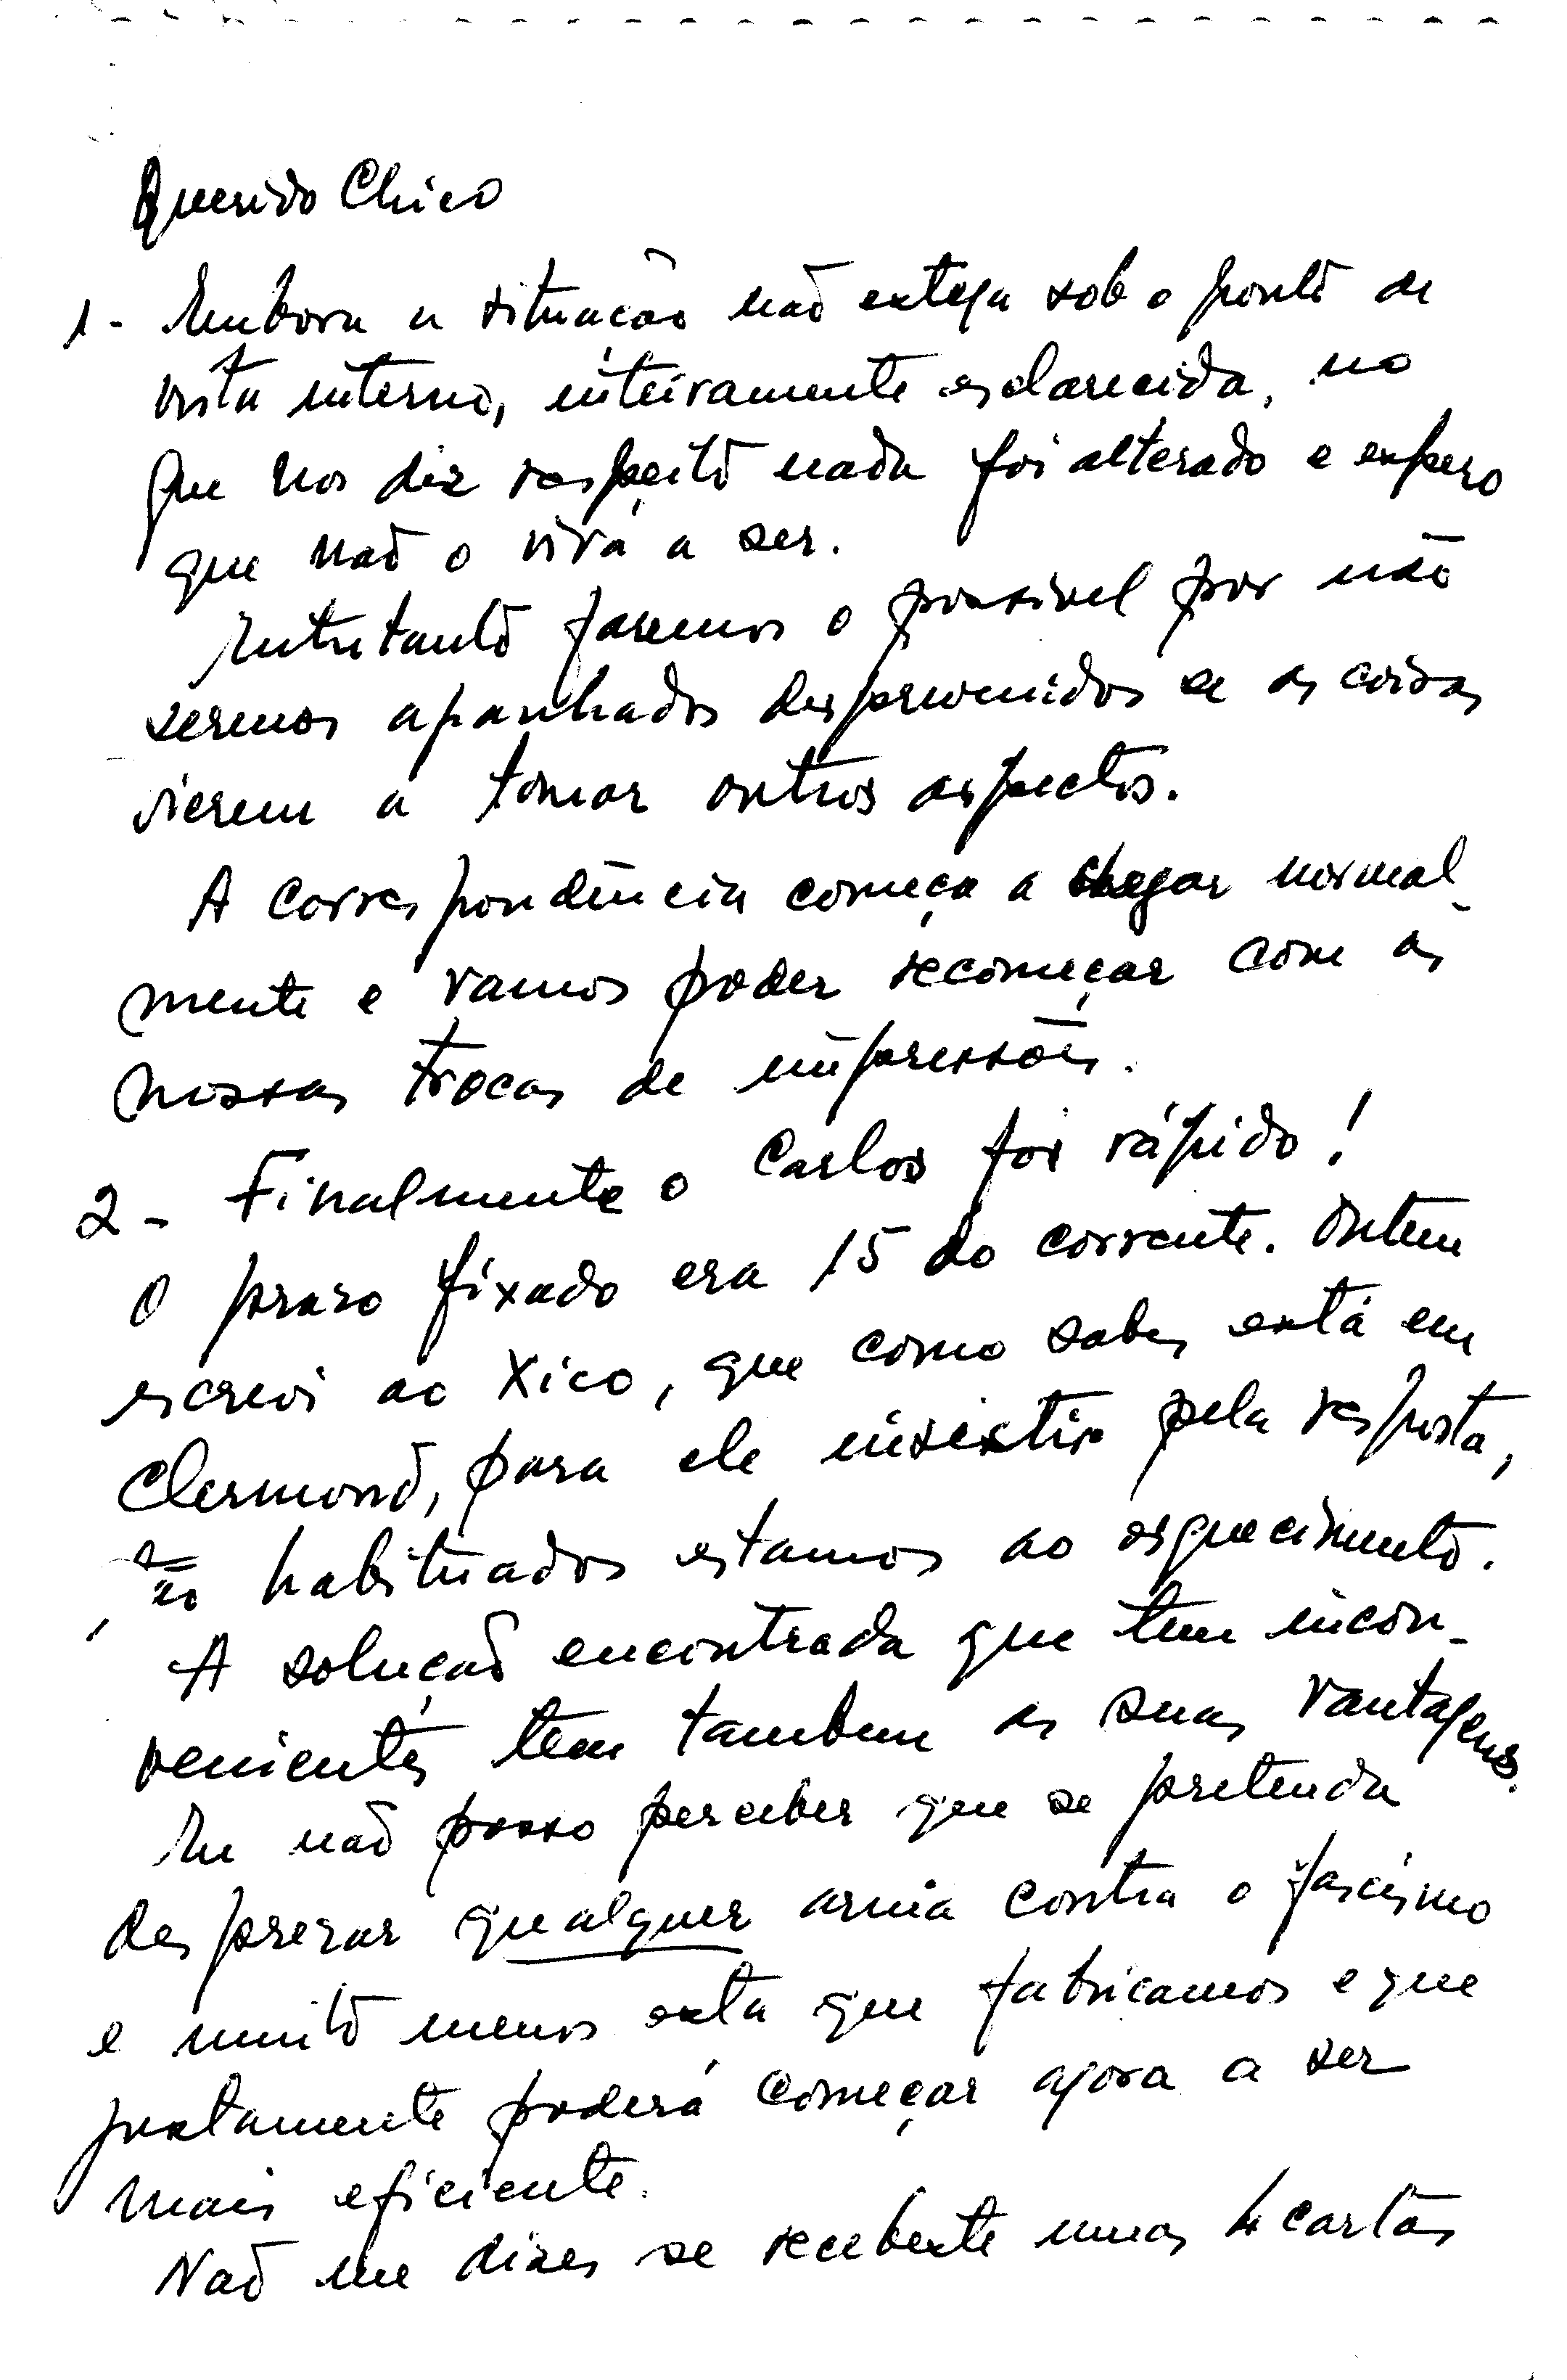 Querido Chico
1 - Embora a situação não esteja sob o ponto de
vista interno, inteiramente esclarecida, no
que nos diz respeito nada foi alterado e espero
que não o virá a ser.
Entretanto faremos o possível por não
sermos apanhados desprevenidos se as coisas
vierem a tomar outros aspectos.
A correspondência começa a chegar normal-
mente e vamos poder recomeçar com as
nossas trocas de impressões.
2 - Finalmente o Carlos foi rápido!
O prazo fixado era 15 do corrente. Ontem
escrevi ao Xico, que como sabes está em
Clermond, para ele insistir pela resposta,
tão habituados estamos ao esquecimento.
A solução encontrada que tem incon-
venientes tem tambem as suas vantagens.
Eu não posso perceber que se pretenda
desprezar qualquer arma contra o fascismo
e muito menos esta que fabricamos e que
justamente poderá começar agora a ser
mais eficiente.
Não me dizes se recebeste umas 4 cartas